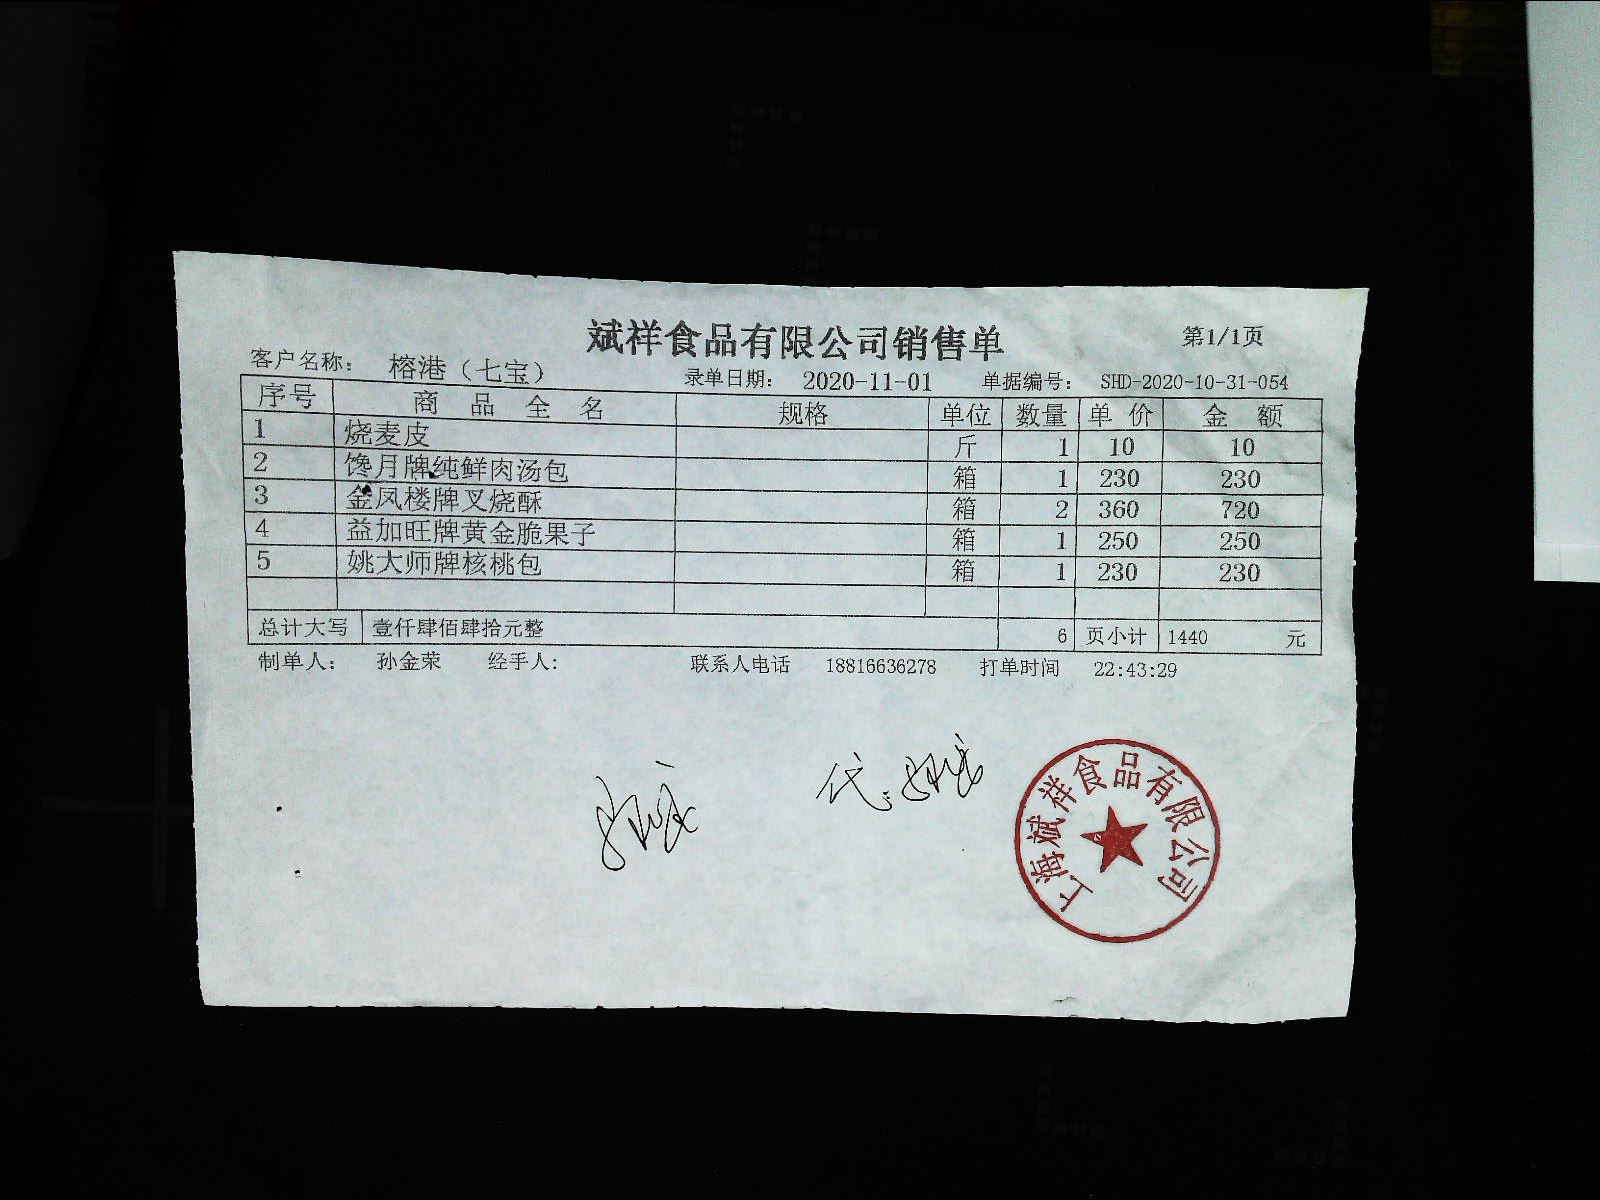 斌祥食品有限公司销售单
第1/1页
客户名称： 榕港（七宝） 录单日期： 2020-11-01 单据编号： SHD-2020-10-31-054
序号 商品全名 规格 单位 数量 单价 金额
1 烧麦皮 斤 1 10 10
2 馋月牌纯鲜肉汤包 箱 1 230 230
3 金凤楼牌叉烧酥 箱 2 360 720
4 益加旺牌黄金脆果子 箱 1 250 250
5 姚大师牌核桃包 箱 1 230 230
总计大写 壹仟肆佰肆拾元整 6 页小计 1440 元
制单人： 孙金荣 经手人： 联系人电话 18816636278 打单时间 22:43:29
代：
上海斌祥食品有限公司